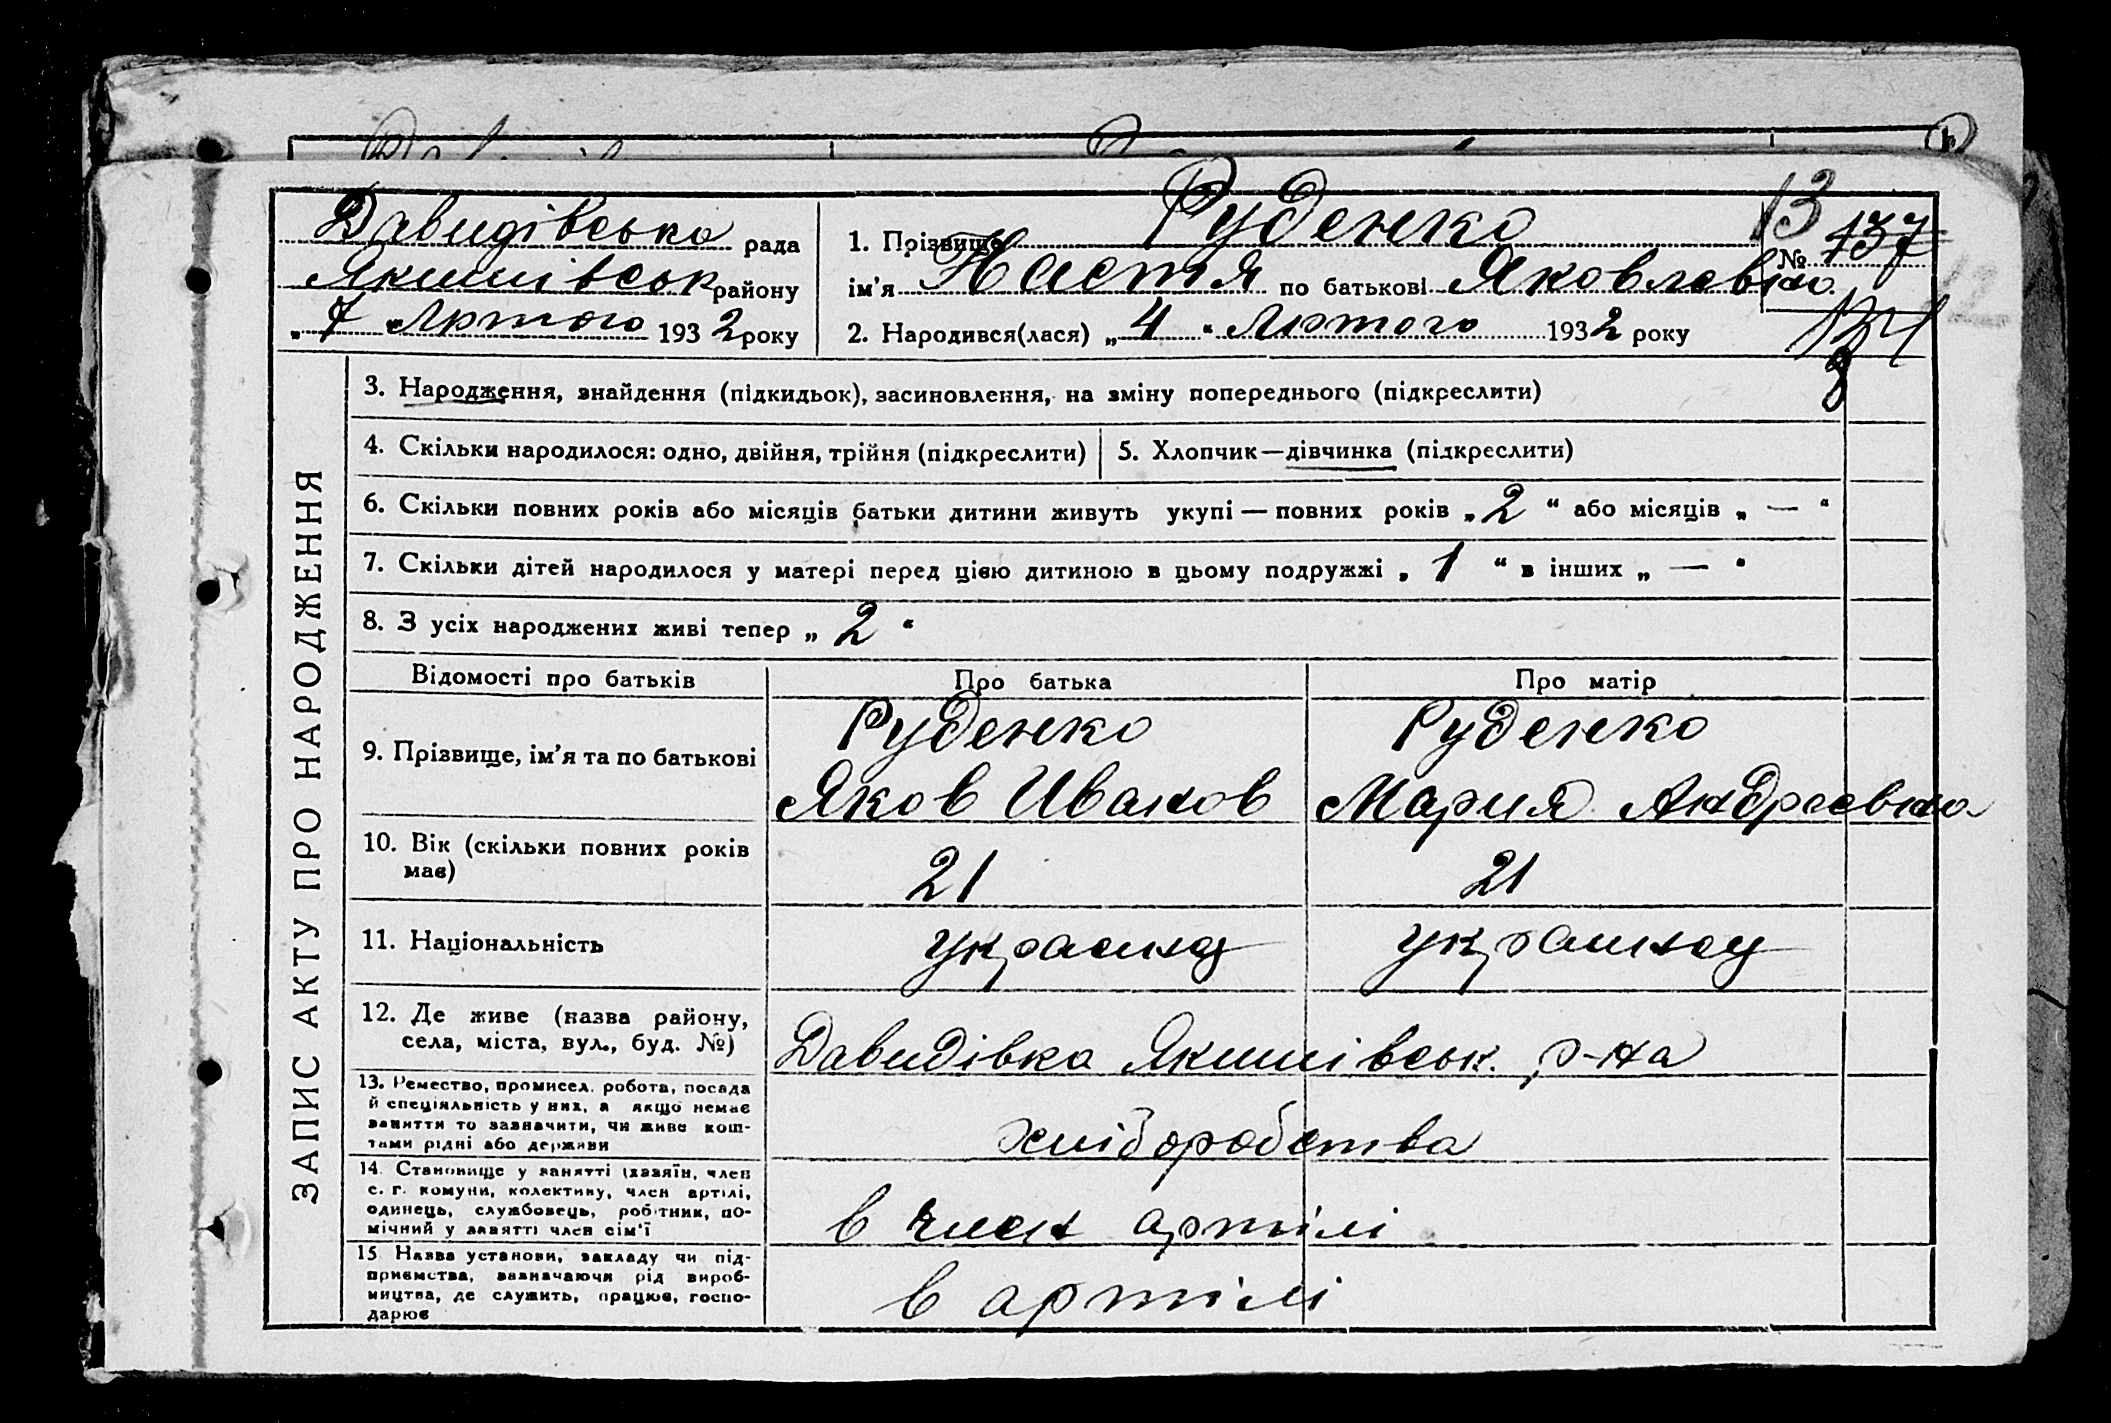 Давидівська рада
Якимівськ району
„ 7 " Лютого 1932 року
1. Прізвище Руденко
ім'я Настя по батькові Яковлевна
2. Народився(лася) „ 4 " Лютого 1932 року
13
№ 137
ЗАПИС АКТУ ПРО НАРОДЖЕННЯ
3. Народження, знайдення (підкидьок), засиновлення, на зміну попереднього (підкреслити)
4. Скільки народилося: одно, двійня, трійня (підкреслити)
5. Хлопчик—дівчинка (підкреслити)
6. Скільки повних років або місяців батьки дитини живуть укупі — повних років „ 2 " або місяців „ — "
7. Скільки дітей народилося у матері перед цією дитиною в цьому подружжі „ 1 " в інших „ — "
8. З усіх народжених живі тепер „ 2 "
Відомості про батьків Про батька Про матір
9. Прізвище, ім'я та по батькові
Руденко
Яков Иванов
Руденко
Мария Андреевна
10. Вік (скільки повних років
має)
21
21
11. Національність
украинц
украинец
12. Де живе (назва району,
села, міста, вул., буд. №)
Давидівка Якимівськ. р-на
13. Ремество, промисел. робота, посада
й спеціяльність у них, а якщо немає
заняття то зазначити, чи живе кош-
тами рідні або держави
хліборобства
14. Становище у занятті (хазяїн, член
с. г. комуни, колективу, член артілі,
одинець, службовець, робітник, по-
мічний у занятті член сім'ї
в член артілі
15. Назва установи, закладу чи під-
приємства, зазначаючи рід вироб-
ництва, де служить, працює, госпо-
дарює
в артілі